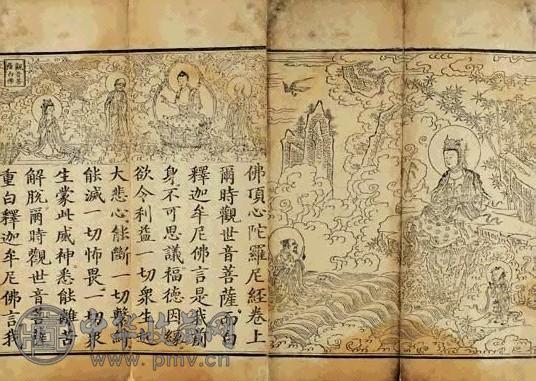 觀音菩
薩白佛
佛頂心陀羅尼經卷上
爾時觀世音菩薩而白
釋迦牟尼佛言是我前
身不可思議福德因緣
欲令利益一切衆生
大悲心能斷一切繫
能滅一切怖畏一切衆
生蒙此威神悉能離苦
解脫爾時觀世音菩薩
重白釋迦牟尼佛言我
中华收藏网
www.pmv.cn